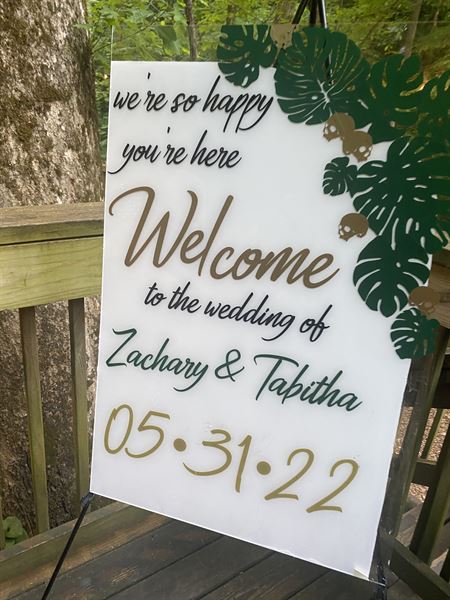 we're so happy
you're here
Welcome
to the wedding of
Zachary & Tabitha
05•31•22